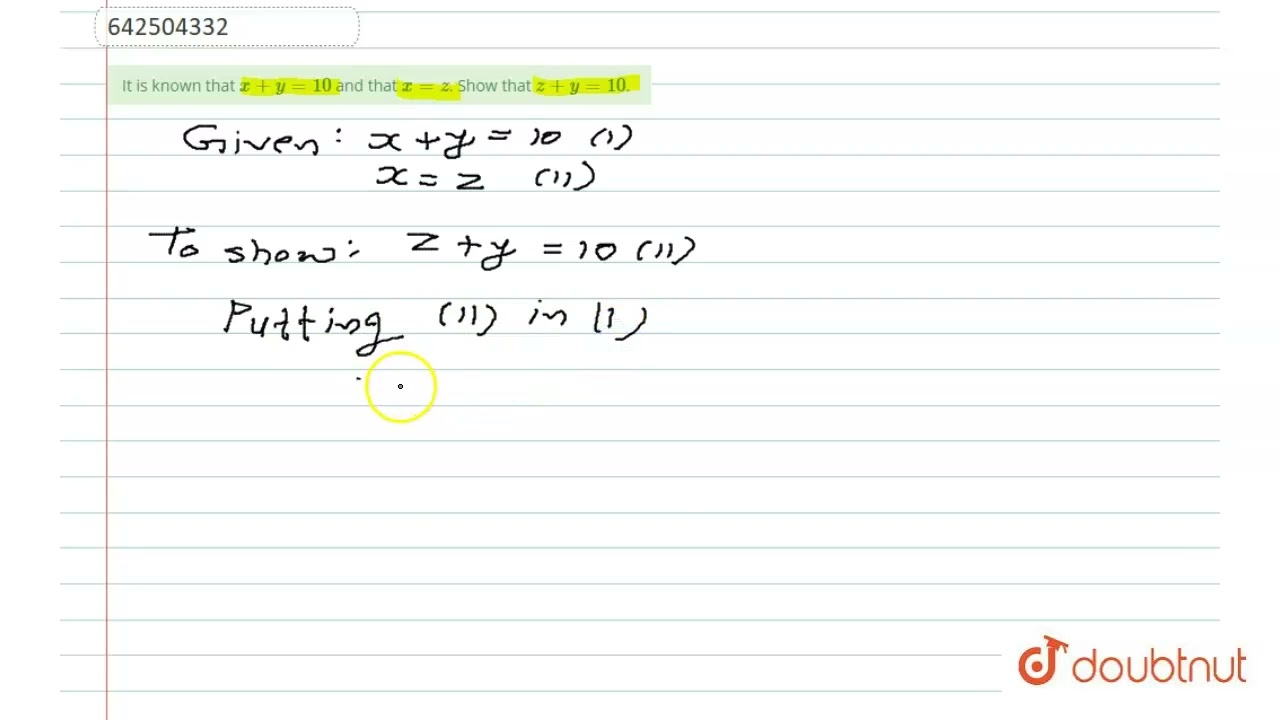 642504332
It is known that x + y = 10 and that x = z. Show that z + y = 10.
Given: x + y = 10 (1)
x = z (11)
To show: z + y = 10 (11)
Putting (11) in (1)
doubtnut